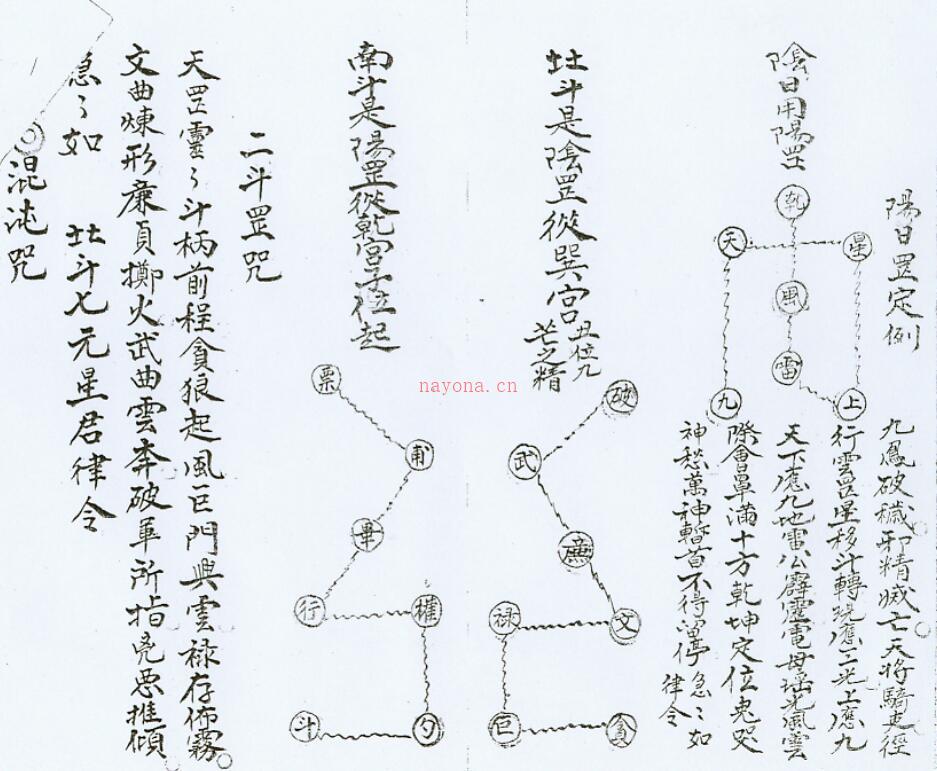 陽日罡定例
陰日用陽罡
乾
天
星
風
雷
九
上
九鳳破穢邪精滅亡天将騎吏徑
行雲罡星移斗轉現應三光上應九
天下應九地雷公霹靂電母瑶光風雲
際會罩滿十方乾坤定位鬼哭
神愁萬神暫首不得留停急〻如
律令
北斗是陰罡從巽宮丑位九
芒之精
破
武
廉
文
禄
巨
貪
南斗是陽罡從乾宮子位起
票
甫
畢
行
權
斗
勺
二斗罡咒
天罡靈〻斗柄前程貪狼起風巨門興雲禄存佈霧
文曲煉形廉貞擲火武曲雲奔破軍所指兇惡摧傾
急〻如 北斗七元星君律令
混沌咒
nayona.cn